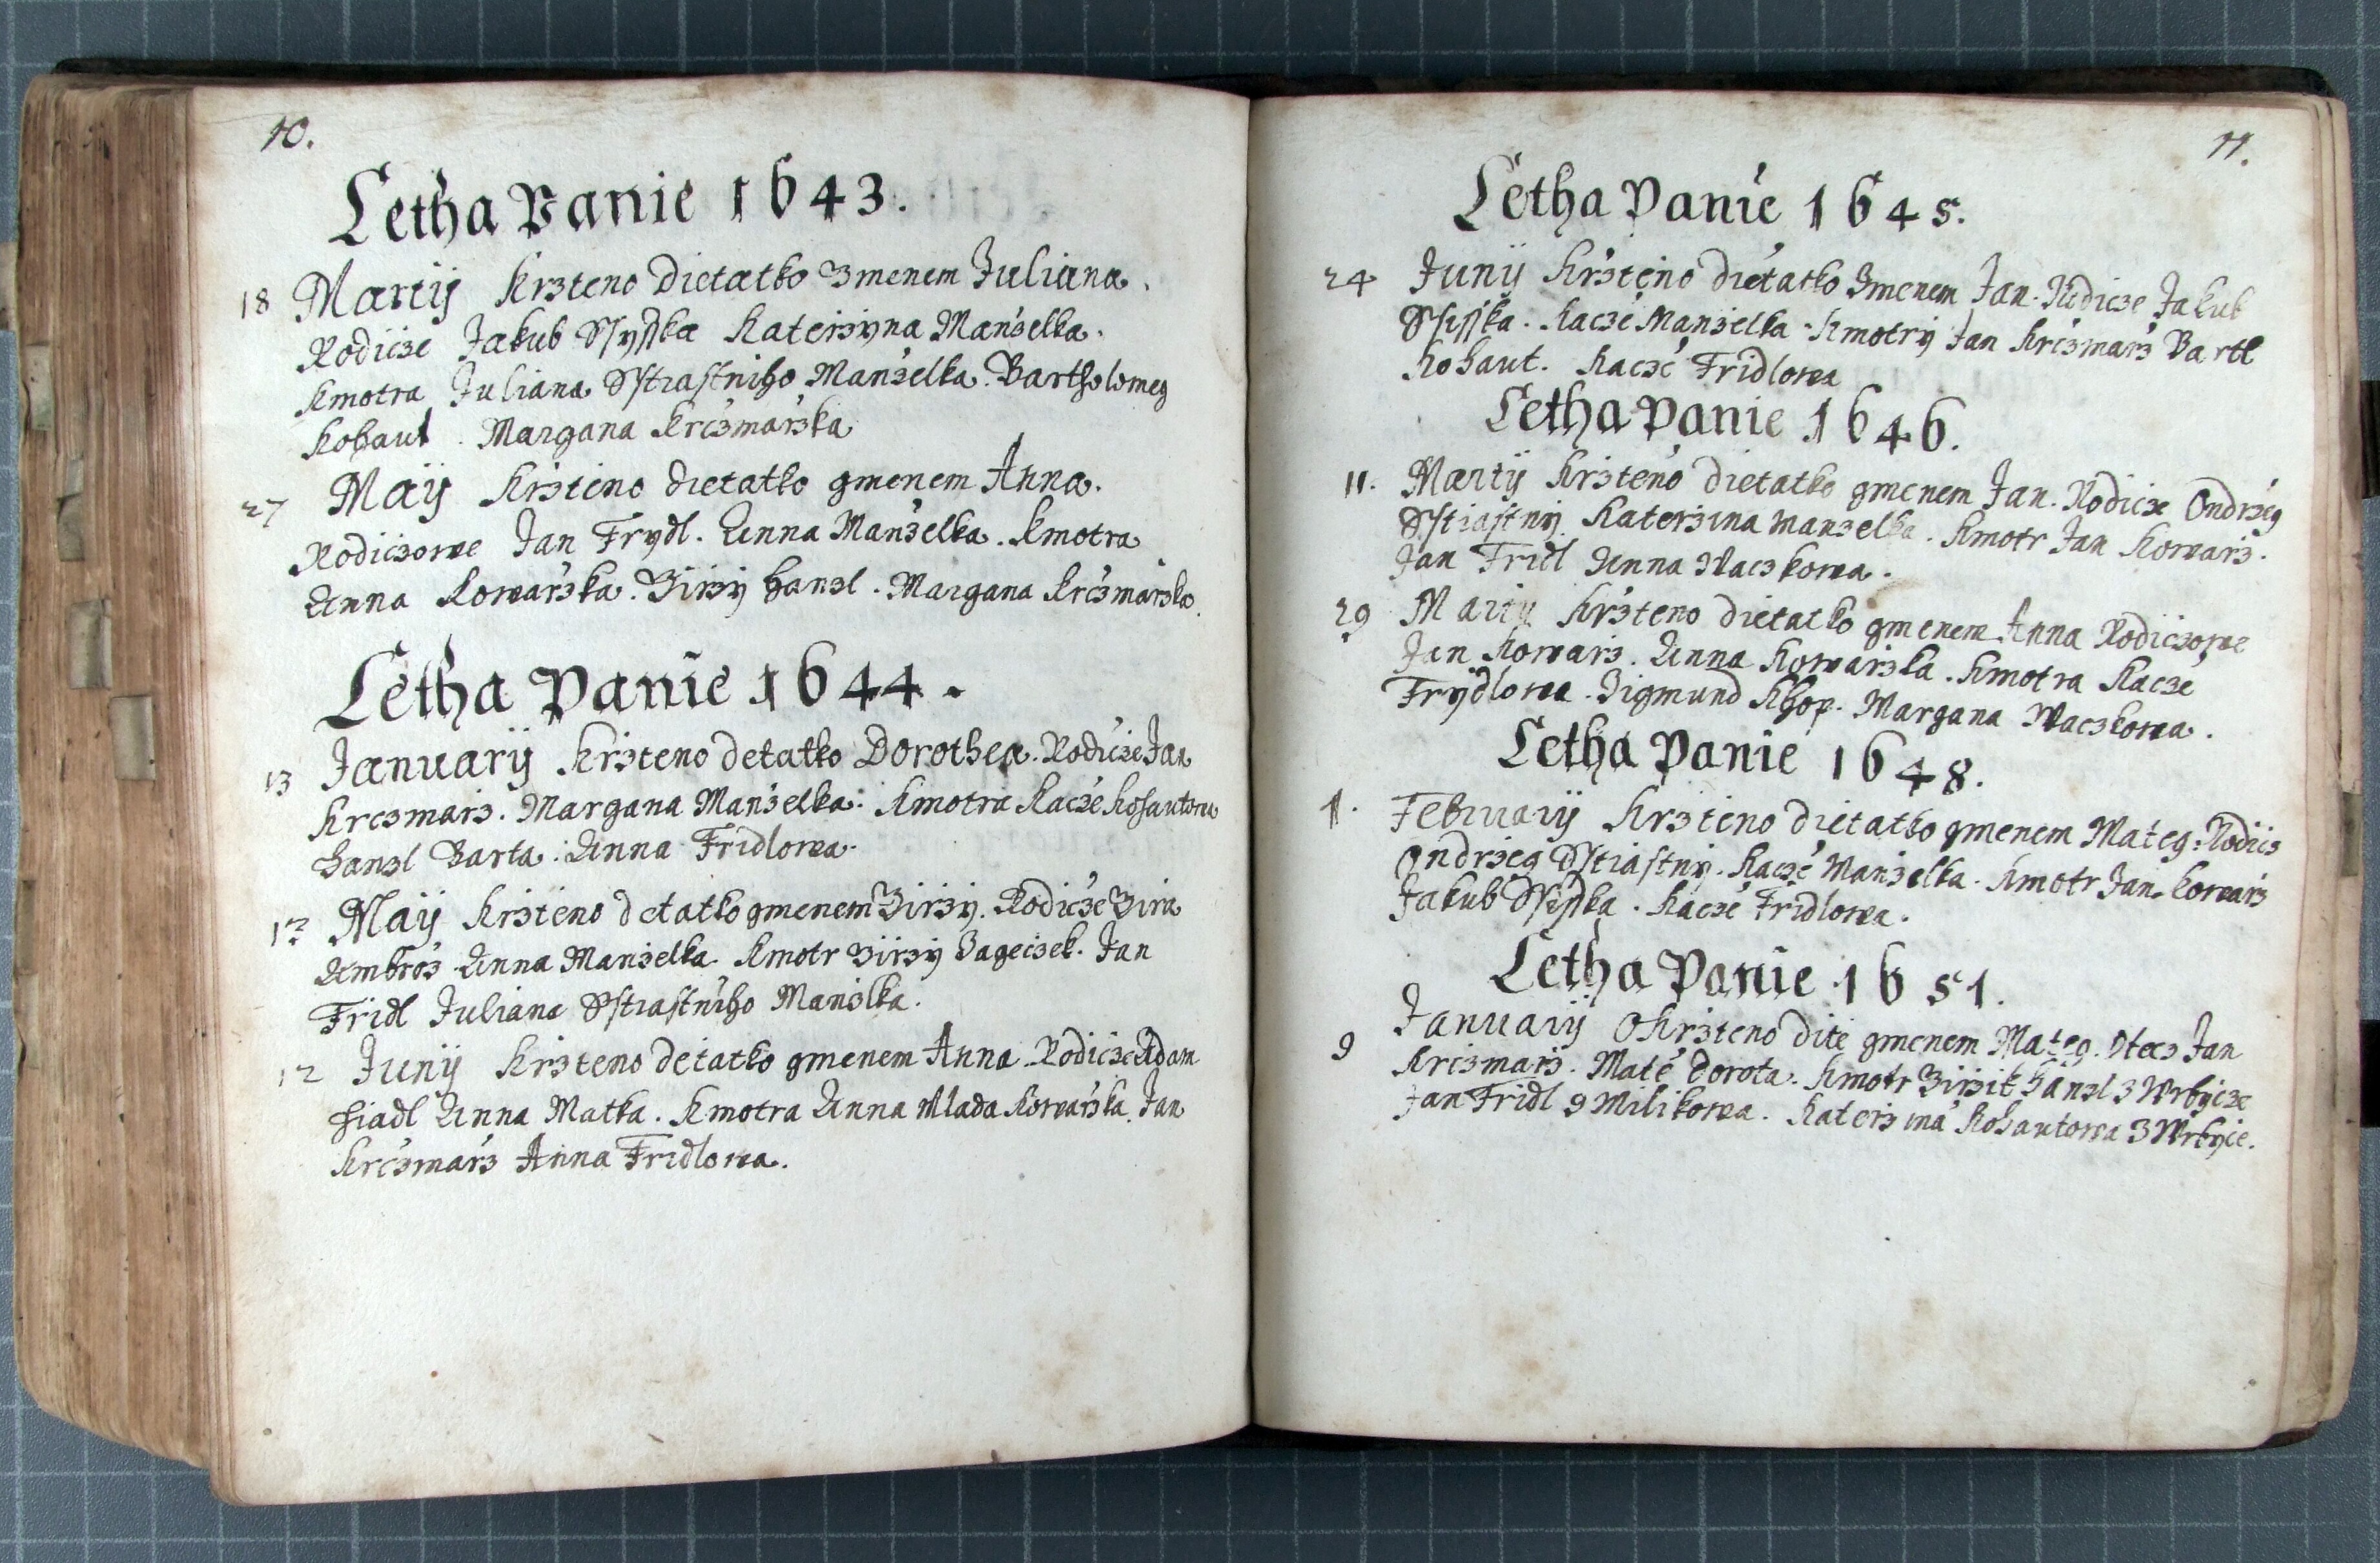 10.
Letha Panie 1643.
18 Martij Krzteno Dietatko Zmenem Juliana.
Rodicze Jakub Ssysska Katerzyna Manżelka.
Kmotra Juliana Sstiastniho Manżelka. Bartholomeg
Kohaut. Margana Krczmarżka
27 Maij Krżteno Dietatko gmenem Anna.
Rodiczowe Jan Frydl. Anna Manżelka. Kmotra
Anna Kowarżka. Jirży Hanzl. Margana Krczmarżka.
Letha Panie 1644.
13 Januarij Krżteno detatko Dorothea. Rodicże Jan
Krczmarż. Margana Manżelka. Kmotra Kacże Kohautowa
Hanzl Barta. Anna Fridlowa.
Maij Krżteno detatko gmenem Jirży. Rodicże Jira
Ambroż Anna Manżelka. Kmotr Jirży Bageczek. Jan
Fridl Juliana Sstiastniho Manżlka.
12 Junij Krżteno detatko gmenem Anna. Rodicze Adam
Anna Matka. Kmotra Anna Mlada Kowarżka. Jan
Krczmarż Anna Fridlowa.
11.
Letha Panie 1645.
24 Junij Krżteno dietatko Zmenem Jan. Rodicze Jakub
Ssisska. Kacże Manżelka. Kmotry Jan Krczmarż Bartl
Kohaut. Kacże Fridlowa
Letha Panie 1646.
11. Martij Krżteno dietatko gmenem Jan. Rodicze Ondrżeg
Sstiastny. Katerżina manżelka. Kmotr Jan Kowarż.
Jan Fridl Anna Waczkowa.
29 Martij Krżteno dietatko gmenem Anna Rodiczowe
Jan Kowarż. Anna Kowarżka. Kmotra Kacże
Frydlowa. Zigmund Margana Waczkowa.
Letha Panie 1648.
1. Februarij Krżteno dietatko gmenem Mateg. Rodicż
Ondrżeg Sstiastny. Kacże Manżelka. Kmotr Jan Kowarż
Jakub Ssisska. Kacże Fridlowa.
Letha Panie 1651.
9 Januarij Okrżteno dite gmenem Mateg. Otecz Jan
Krczmarż. Mate Dorota. Kmotr Jirżik Hanzl z Wrbicze
Jan Fridl z Milikowa. Katerżina Kohautowa z Wrbice.